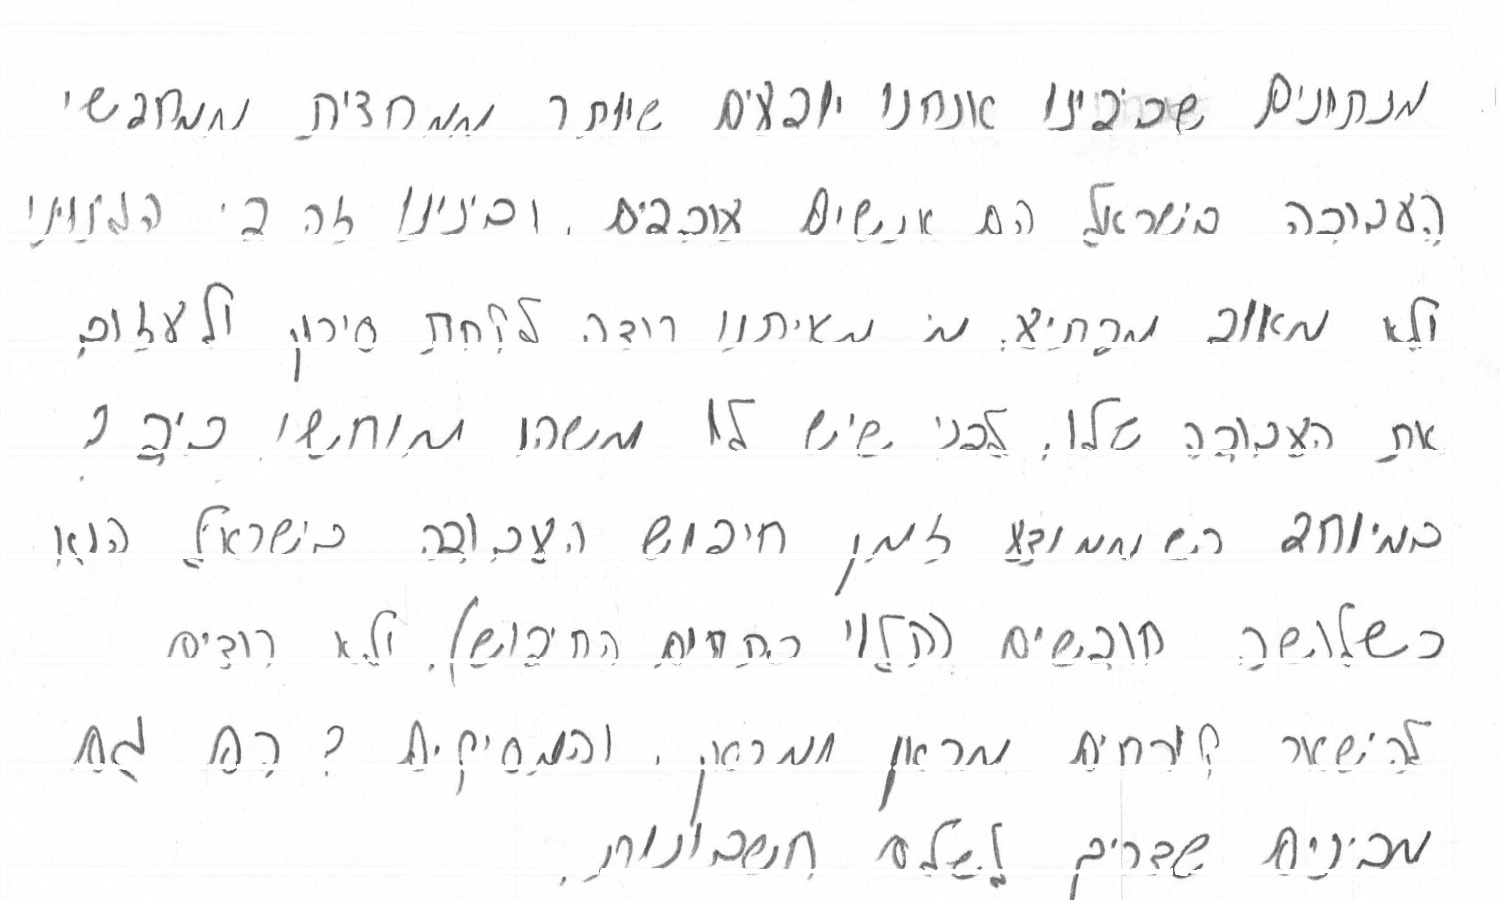 מנתונים שבינינו אנחנו יודעים שיותר ממחצית וממחפשי
העבודה בישראל הם אנשים עובדים. ובינינו זה די הגיוני
ולא מאוד מפתיע. מי מאיתנו רוצה לקחת סיכון ולעזוב
את העבודה שלו, לפני שיש לו משהו מוחשי ביד?
במיוחד הממוצע זמן חיפוש העבודה בישראל הוא
כשלושה חודשים (תלוי בתחום החיפוש), ולא רוצים
להישאר קירחים מכאן ומכאן. והמעסיקים? הם גם
מבינים שצריך לשלם חשבונות.